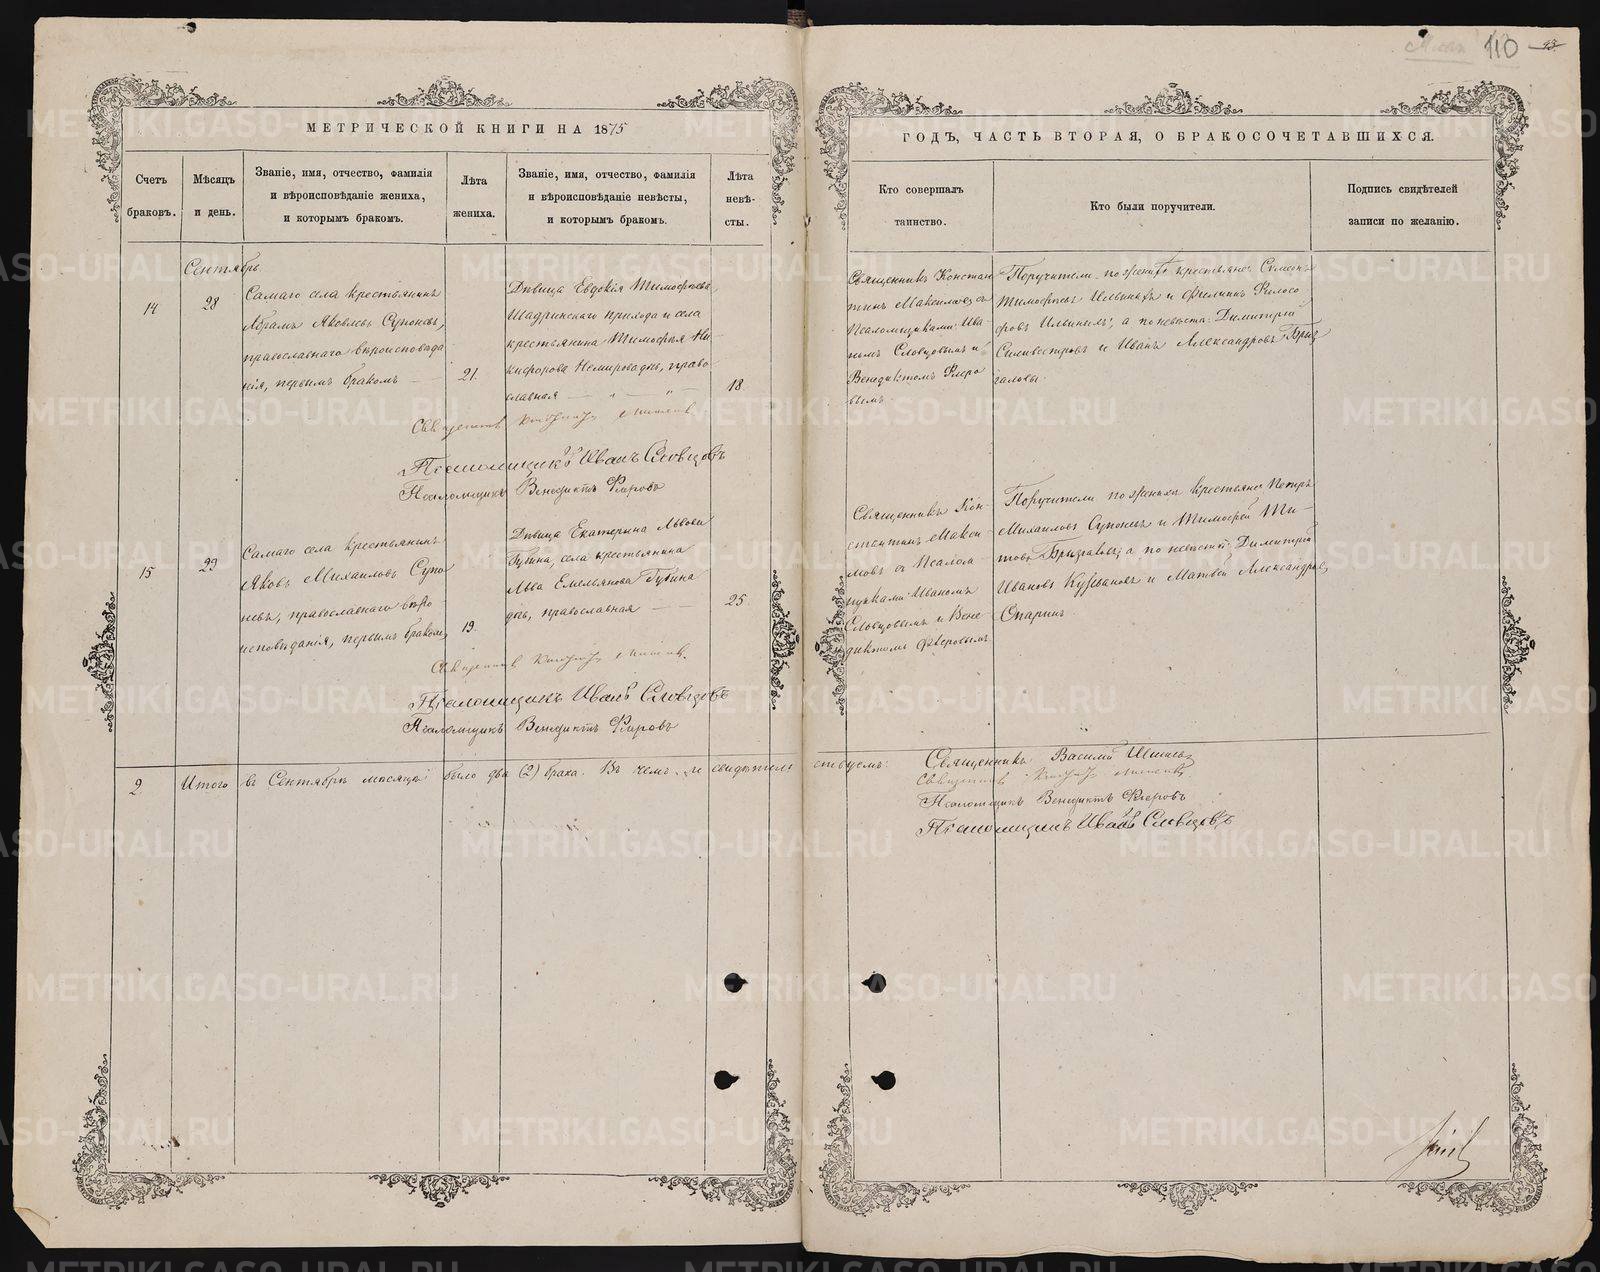 110
МЕТРИЧЕСКОЙ КНИГИ НА 1875
ГОДЪ, ЧАСТЬ ВТОРАЯ, О БРАКОСОЧЕТАВШИХСЯ.
Счетъ
браковъ.
Мѣсяцъ
и день.
Званіе, имя, отчество, фамилія
и вѣроисповѣданіе жениха,
и которымъ бракомъ.
Лѣта
жениха.
Званіе, имя, отчество, фамилія
и вѣроисповѣданіе невѣсты,
и которымъ бракомъ.
Лѣта
невѣ-
сты.
Кто совершалъ
таинство.
Кто были поручители.
Подпись свидѣтелей
записи по желанію.
Сентябрь
14
28
Самаго села крестьянинъ
Абрамъ Яковлевъ Супоневъ,
православнаго вѣроисповѣда
нія, первымъ бракомъ —
21.
Дѣвица Евдокія Тимофѣева,
Шадринскаго прихода и села
крестьянина Тимофея Ни-
кифорова дочь, право-
славная
18
Священникъ Констан
тинъ Максимовъ съ
Псаломщиками: Ива-
номъ Словцовымъ и
Венедиктомъ Флеро
вымъ
Поручители по женихѣ крестьяне: Семенъ
Тимофѣевъ и Филиппъ Филосо
фовъ; а по невѣстѣ: Димитрій
Селивестровъ и Иванъ Александровъ Бриз
галовы.
Священникъ
Псаломщикъ Иванъ Словцовъ
Псаломщикъ Венедиктъ Флеровъ
15
29
Самаго села крестьянинъ
Яковъ Михаиловъ Супо
невъ, православнаго вѣро
исповѣданія, первымъ бракомъ,
19.
Дѣвица Екатерина Львова
Губина, села крестьянина
Льва Емельянова Губина
дочь, православная — —
25
Священникъ Кон-
стантинъ Макси-
мовъ съ Псалом
щиками: Иваномъ
Словцовымъ и Вене-
диктомъ Флеровымъ
Поручители по женихѣ крестьяне Петръ
Михаиловъ Супоневъ и Тимофей Ти-
товъ; а по невѣстѣ: Димитрій
Ивановъ и Матвей Александровъ
Опаринъ.
Священникъ
Псаломщикъ Иванъ Словцовъ
Псаломщикъ Венедиктъ Флеровъ
2 Итого въ Сентябрѣ мѣсяцѣ было два (2) брака. Въ чемъ и свидѣтель ствуемъ: Священникъ Василій
Священникъ
Псаломщикъ Венедиктъ Флеровъ
Псаломщикъ Иванъ Словцовъ
METRIKI.GASO-URAL.RU